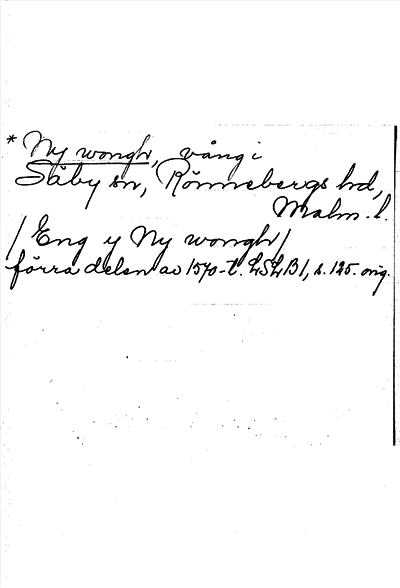 * Ny wongh, vång i
Säby sn, Rönnebergs hd,
Malm. l.
/Eng y Ny wongh/
förra delen av 1570-t. LSLB1, s. 125. orig.